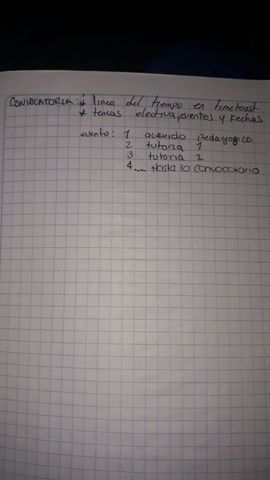 CONVOCATORIA: * linea del tiempo en timetoast
* temas electiva, eventos y fechas
evento: 1 acuerdo pedagogico
2 tutoria 1
3 tutoria 2
4.... Hasta la convocatoria